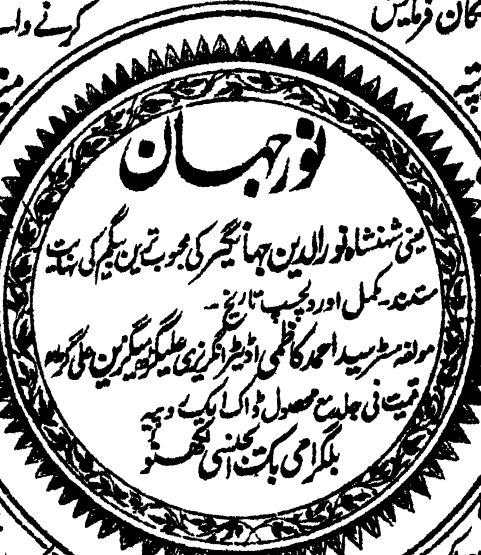 کان فرمایش
کرنے والے
نور جہان
یعنی شہنشاہ نورالدین جہانگیر کی محبوب ترین بیگم کی نہایت
مستند۔ مکمل اور دلچسپ تاریخ۔
مولفہ مسٹر سید احمد کاظمی اڈیٹر انگریزی علیگڑھ میگزین علی گڑھ
قیمت فی جلد مع محصول ڈاک ایک روپیہ
بلگرامی بک ایجنسی لکھنؤ